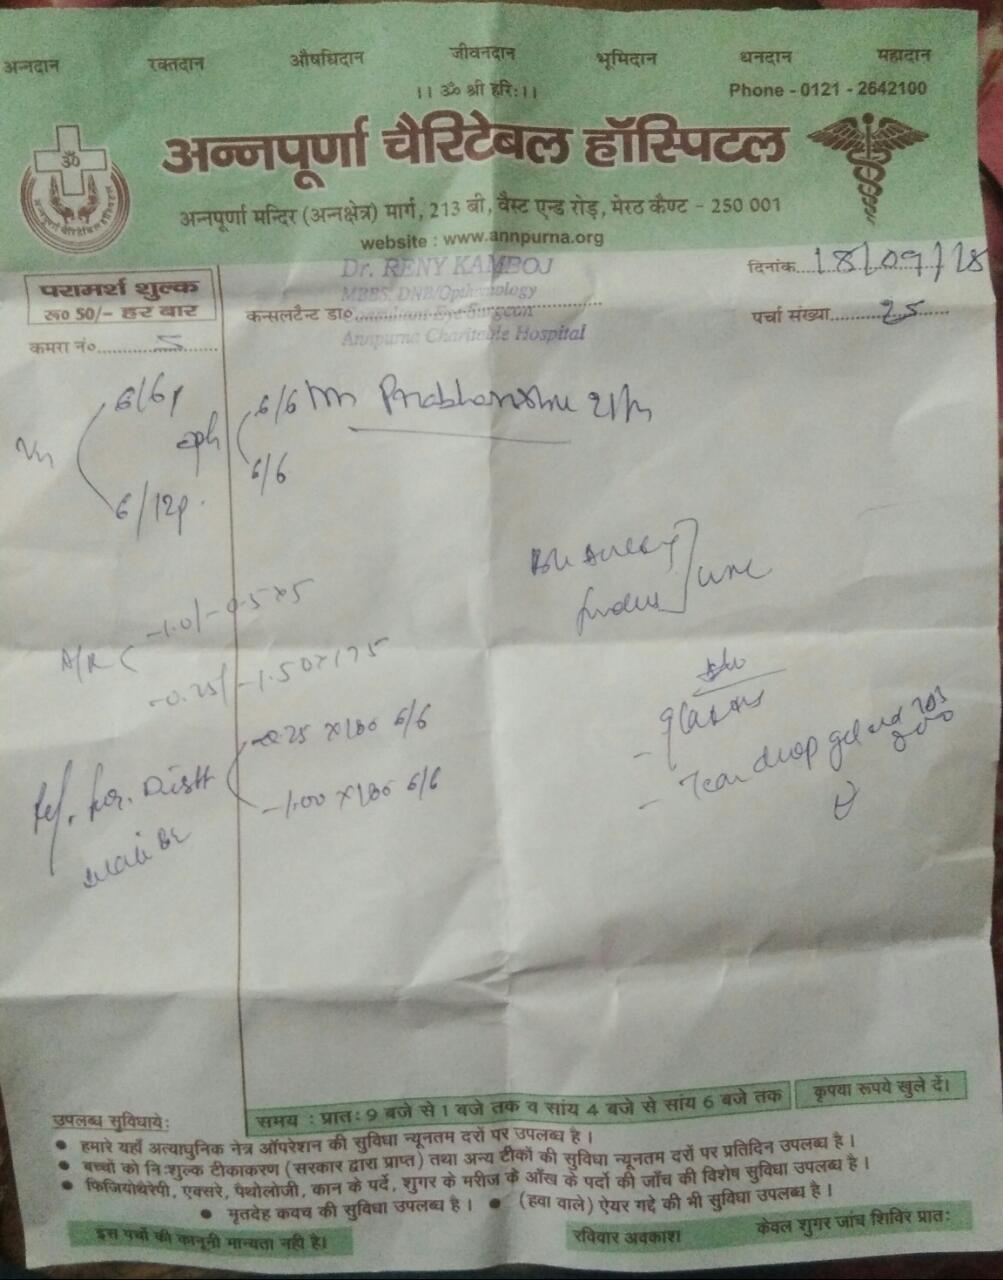 अन्नदान रक्तदान औषधिदान जीवनदान भूमिदान धनदान महादान
।। ॐ श्री हरि: ।।
Phone - 0121 - 2642100
ॐ
अन्नपूर्णा चैरिटेबल हॉस्पिटल
अन्नपूर्णा मन्दिर (अन्नक्षेत्र) मार्ग, 213 बी, वैस्ट एन्ड रोड़, मेरठ कैण्ट - 250 001
website : www.annpurna.org
परामर्श शुल्क
रू० 50/- हर बार
कमरा नं०.......5
Dr. RENY KAMBOJ
MBBS, DNB/Opthamology
कन्सलटैन्ट डा० Eye Surgeon
Annpurna Charitable Hospital
दिनांक....18/09/18
पर्चा संख्या.........25
Vn 6/6p 6/6 Mr Prabhanshu 21/M
6/12p. 6/6
A/R -1.0/-0.5x5
-0.25/-1.50x175
-0.25 x180 6/6
-1.00 x180 6/6
- glasses
- Tear drop gel
समय : प्रातः 9 बजे से 1 बजे तक व सांय 4 बजे से सांय 6 बजे तक
कृपया रूपये खुले दें।
उपलब्ध सुविधाये:
• हमारे यहाँ अत्याधुनिक नेत्र ऑपरेशन की सुविधा न्यूनतम दरों पर उपलब्ध है।
• बच्चों को नि:शुल्क टीकाकरण (सरकार द्वारा प्राप्त) तथा अन्य टीकों की सुविधा न्यूनतम दरों पर प्रतिदिन उपलब्ध है।
• फिजियोथेरेपी, एक्सरे, पैथोलोजी, कान के पर्दे, शुगर के मरीज के आँख के पर्दो की जाँच की विशेष सुविधा उपलब्ध है।
• मृतदेह कवच की सुविधा उपलब्ध है। • (हवा वाले) ऐयर गद्दे की भी सुविधा उपलब्ध है।
इस पर्चा की कानूनी मान्यता नही है।
रविवार अवकाश
केवल शुगर जांच शिविर प्रातः